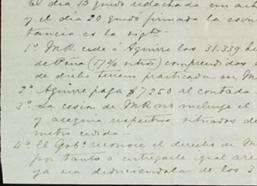 El dia 13 quedó redactada un acta
y el dia 20 quedó firmada la escri
tancia es la sigte.
1º M.R. cede á Aguirre los 31.339
de Peña (17% ) comprendidos
de dicho terreno practicada en M
2º Aguirre paga $7.250 al contado
3º La cesion de M Ros incluye el
y asequia respectiva situados de
metro cedido.
4º El Gobº reconoce el derecho de M
por tanto a entregarle igual are
ya sea deduciendola de los 3